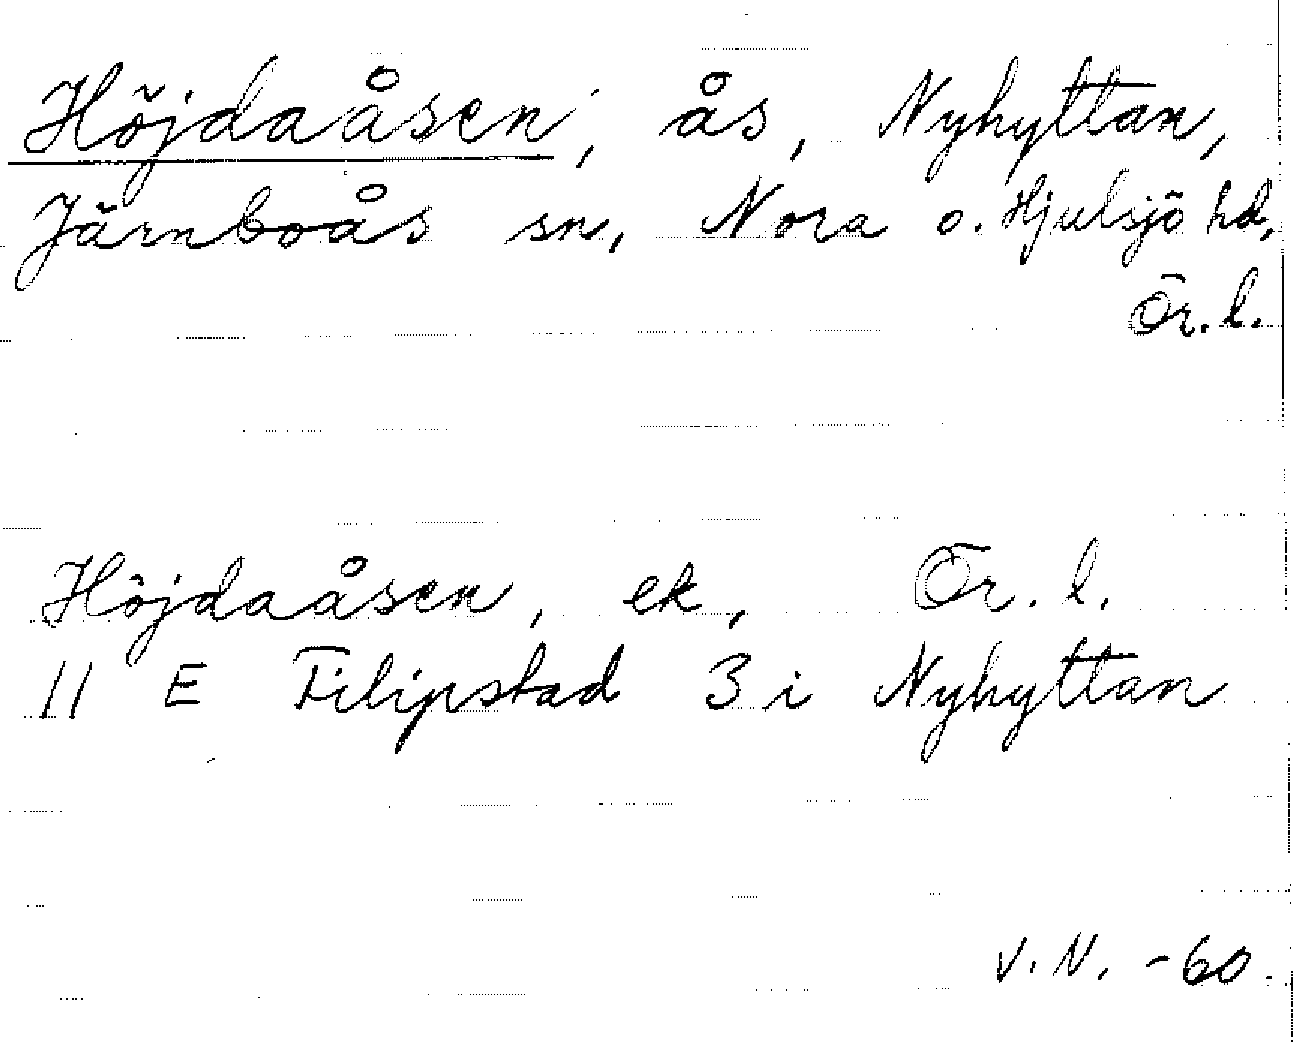 Höjdaåsen, ås, Nyhyttan,
Järnboås sn, Nora o. Hjulsjö hd,
Ör. l.
Höjdaåsen, ek, Ör. l.
11 E Filipstad 3 i Nyhyttan
V. N. -60.